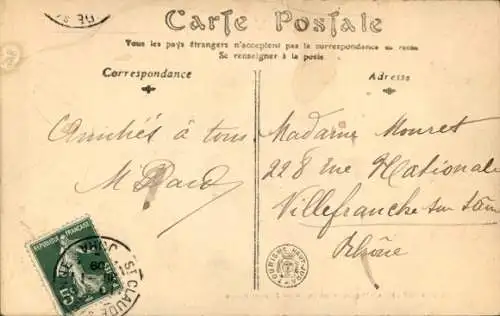 Carte Postale
Tous les pays étrangers n'acceptent pas la correspondance au recto
Se renseigner à la poste
Correspondance
Adresse
Amitiés à tous
Madame Mouret
228 rue Nationale
Villefranche sur Saône
Rhône
REPUBLIQUE FRANÇAISE
5c
ST CLAUDE
JURA
TOURISME HAUT-JURA